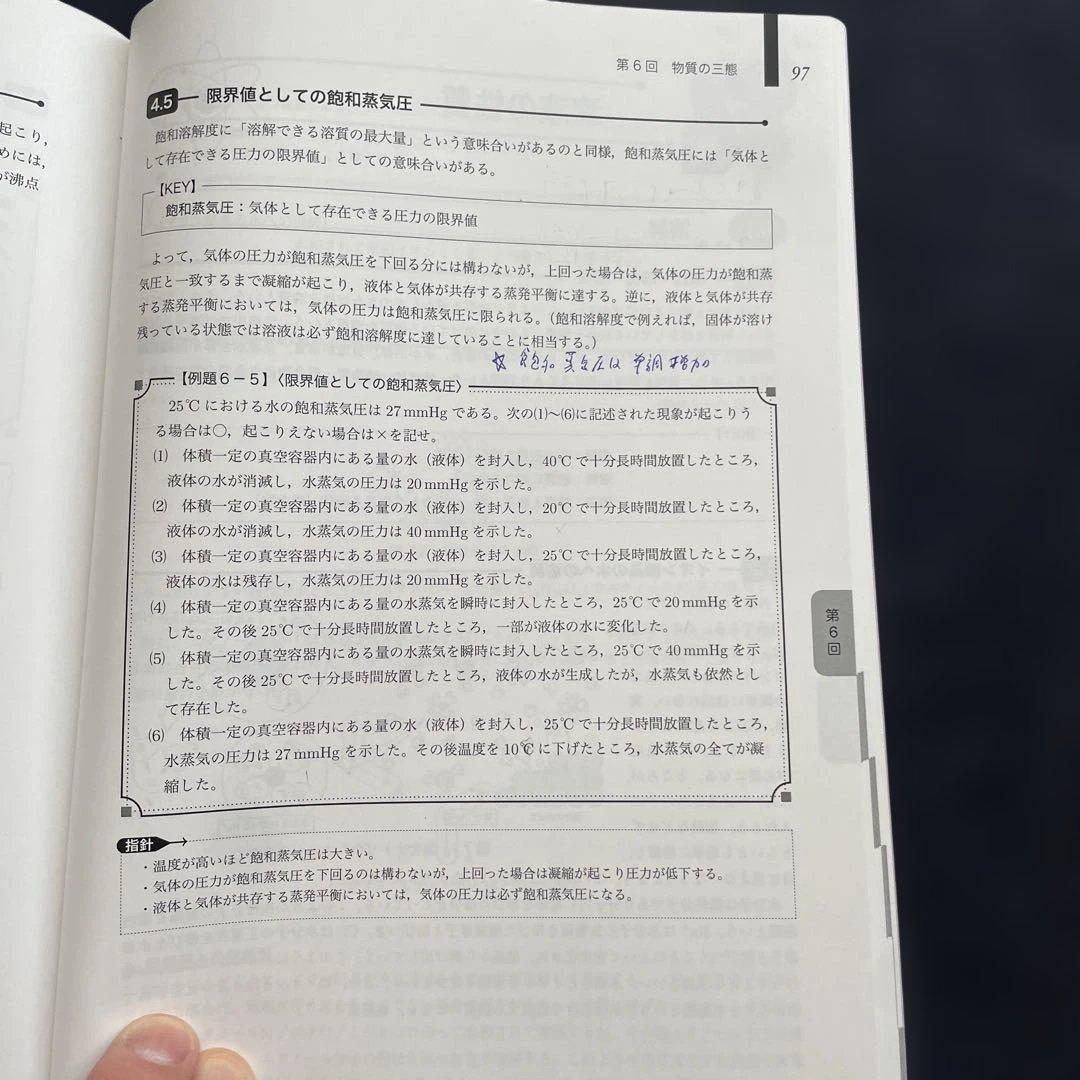 起こり，
めには，
が沸点
第６回　物質の三態　97
4.5　限界値としての飽和蒸気圧
飽和溶解度に「溶解できる溶質の最大量」という意味合いがあるのと同様，飽和蒸気圧には「気体と
して存在できる圧力の限界値」としての意味合いがある。
【KEY】
飽和蒸気圧：気体として存在できる圧力の限界値
よって，気体の圧力が飽和蒸気圧を下回る分には構わないが，上回った場合は，気体の圧力が飽和蒸
気圧と一致するまで凝縮が起こり，液体と気体が共存する蒸発平衡に達する。逆に，液体と気体が共存
する蒸発平衡においては，気体の圧力は飽和蒸気圧に限られる。（飽和溶解度で例えれば，固体が溶け
残っている状態では溶液は必ず飽和溶解度に達していることに相当する。）
☆ 飽和 蒸気圧は 単調増加
【例題６－５】〈限界値としての飽和蒸気圧〉
25℃における水の飽和蒸気圧は 27 mmHg である。次の⑴～⑹に記述された現象が起こりう
る場合は○，起こりえない場合は×を記せ。
⑴　体積一定の真空容器内にある量の水（液体）を封入し，40℃で十分長時間放置したところ，
液体の水が消滅し，水蒸気の圧力は 20 mmHg を示した。
⑵　体積一定の真空容器内にある量の水（液体）を封入し，20℃で十分長時間放置したところ，
液体の水が消滅し，水蒸気の圧力は 40 mmHg を示した。
⑶　体積一定の真空容器内にある量の水（液体）を封入し，25℃で十分長時間放置したところ，
液体の水は残存し，水蒸気の圧力は 20 mmHg を示した。
⑷　体積一定の真空容器内にある量の水蒸気を瞬時に封入したところ，25℃で 20 mmHg を示
した。その後 25℃で十分長時間放置したところ，一部が液体の水に変化した。
⑸　体積一定の真空容器内にある量の水蒸気を瞬時に封入したところ，25℃で 40 mmHg を示
した。その後 25℃で十分長時間放置したところ，液体の水が生成したが，水蒸気も依然とし
て存在した。
⑹　体積一定の真空容器内にある量の水（液体）を封入し，25℃で十分長時間放置したところ，
水蒸気の圧力は 27 mmHg を示した。その後温度を 10℃に下げたところ，水蒸気の全てが凝
縮した。
指針
・温度が高いほど飽和蒸気圧は大きい。
・気体の圧力が飽和蒸気圧を下回るのは構わないが，上回った場合は凝縮が起こり圧力が低下する。
・液体と気体が共存する蒸発平衡においては，気体の圧力は必ず飽和蒸気圧になる。
第６回